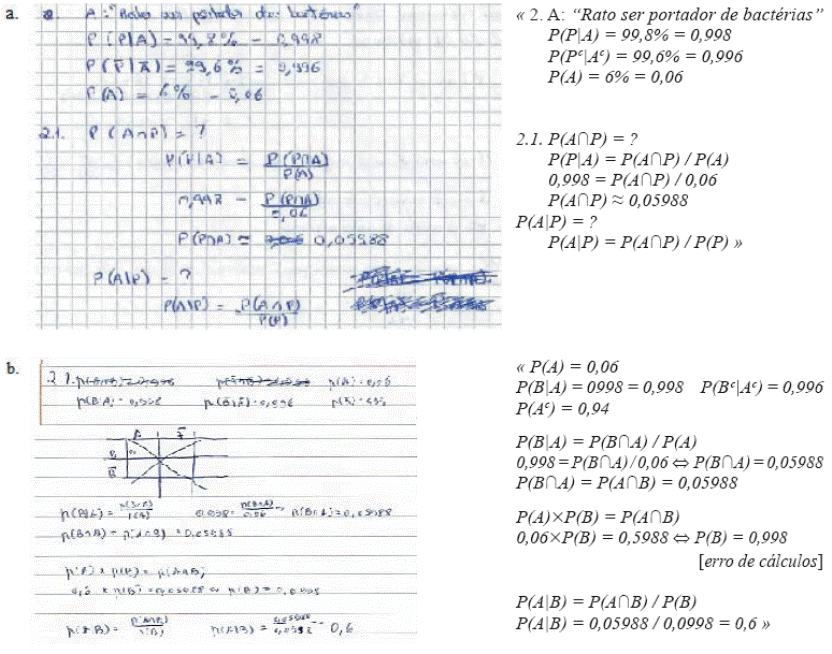 a.
a A: "Rato ser portador de bactérias"
P(P|A) = 99,8% = 0,998
P(P̅|A̅) = 99,6% = 0,996
P(A) = 6% = 0,06
2.1. P(A∩P) = ?
P(P|A) = P(P∩A) / P(A)
0,998 = P(P∩A) / 0,06
P(P∩A) ≈ 0,05988
P(A|P) = ?
P(A|P) = P(A∩P) / P(P)
« 2. A: “Rato ser portador de bactérias”
P(P|A) = 99,8% = 0,998
P(Pᶜ|Aᶜ) = 99,6% = 0,996
P(A) = 6% = 0,06
2.1. P(A∩P) = ?
P(P|A) = P(A∩P) / P(A)
0,998 = P(A∩P) / 0,06
P(A∩P) ≈ 0,05988
P(A|P) = ?
P(A|P) = P(A∩P) / P(P) »
b.
2.1.
p(B|A) = 0,998 p(B̅|A̅) = 0,996
A A̅
B
B̅
p(B|A) = p(B∩A) / p(A) 0,998 = p(B∩A) / 0,06 p(B∩A) = 0,05988
p(B∩A) = p(A∩B) = 0,05988
p(A) x p(B) = p(A∩B)
p(A|B) = p(A∩B) / p(B) p(A|B) = 0,6
« P(A) = 0,06
P(B|A) = 0998 = 0,998 P(Bᶜ|Aᶜ) = 0,996
P(Aᶜ) = 0,94
P(B|A) = P(B∩A) / P(A)
0,998 = P(B∩A) / 0,06 ⇔ P(B∩A) = 0,05988
P(B∩A) = P(A∩B) = 0,05988
P(A)×P(B) = P(A∩B)
0,06×P(B) = 0,5988 ⇔ P(B) = 0,998
[erro de cálculos]
P(A|B) = P(A∩B) / P(B)
P(A|B) = 0,05988 / 0,0998 = 0,6 »